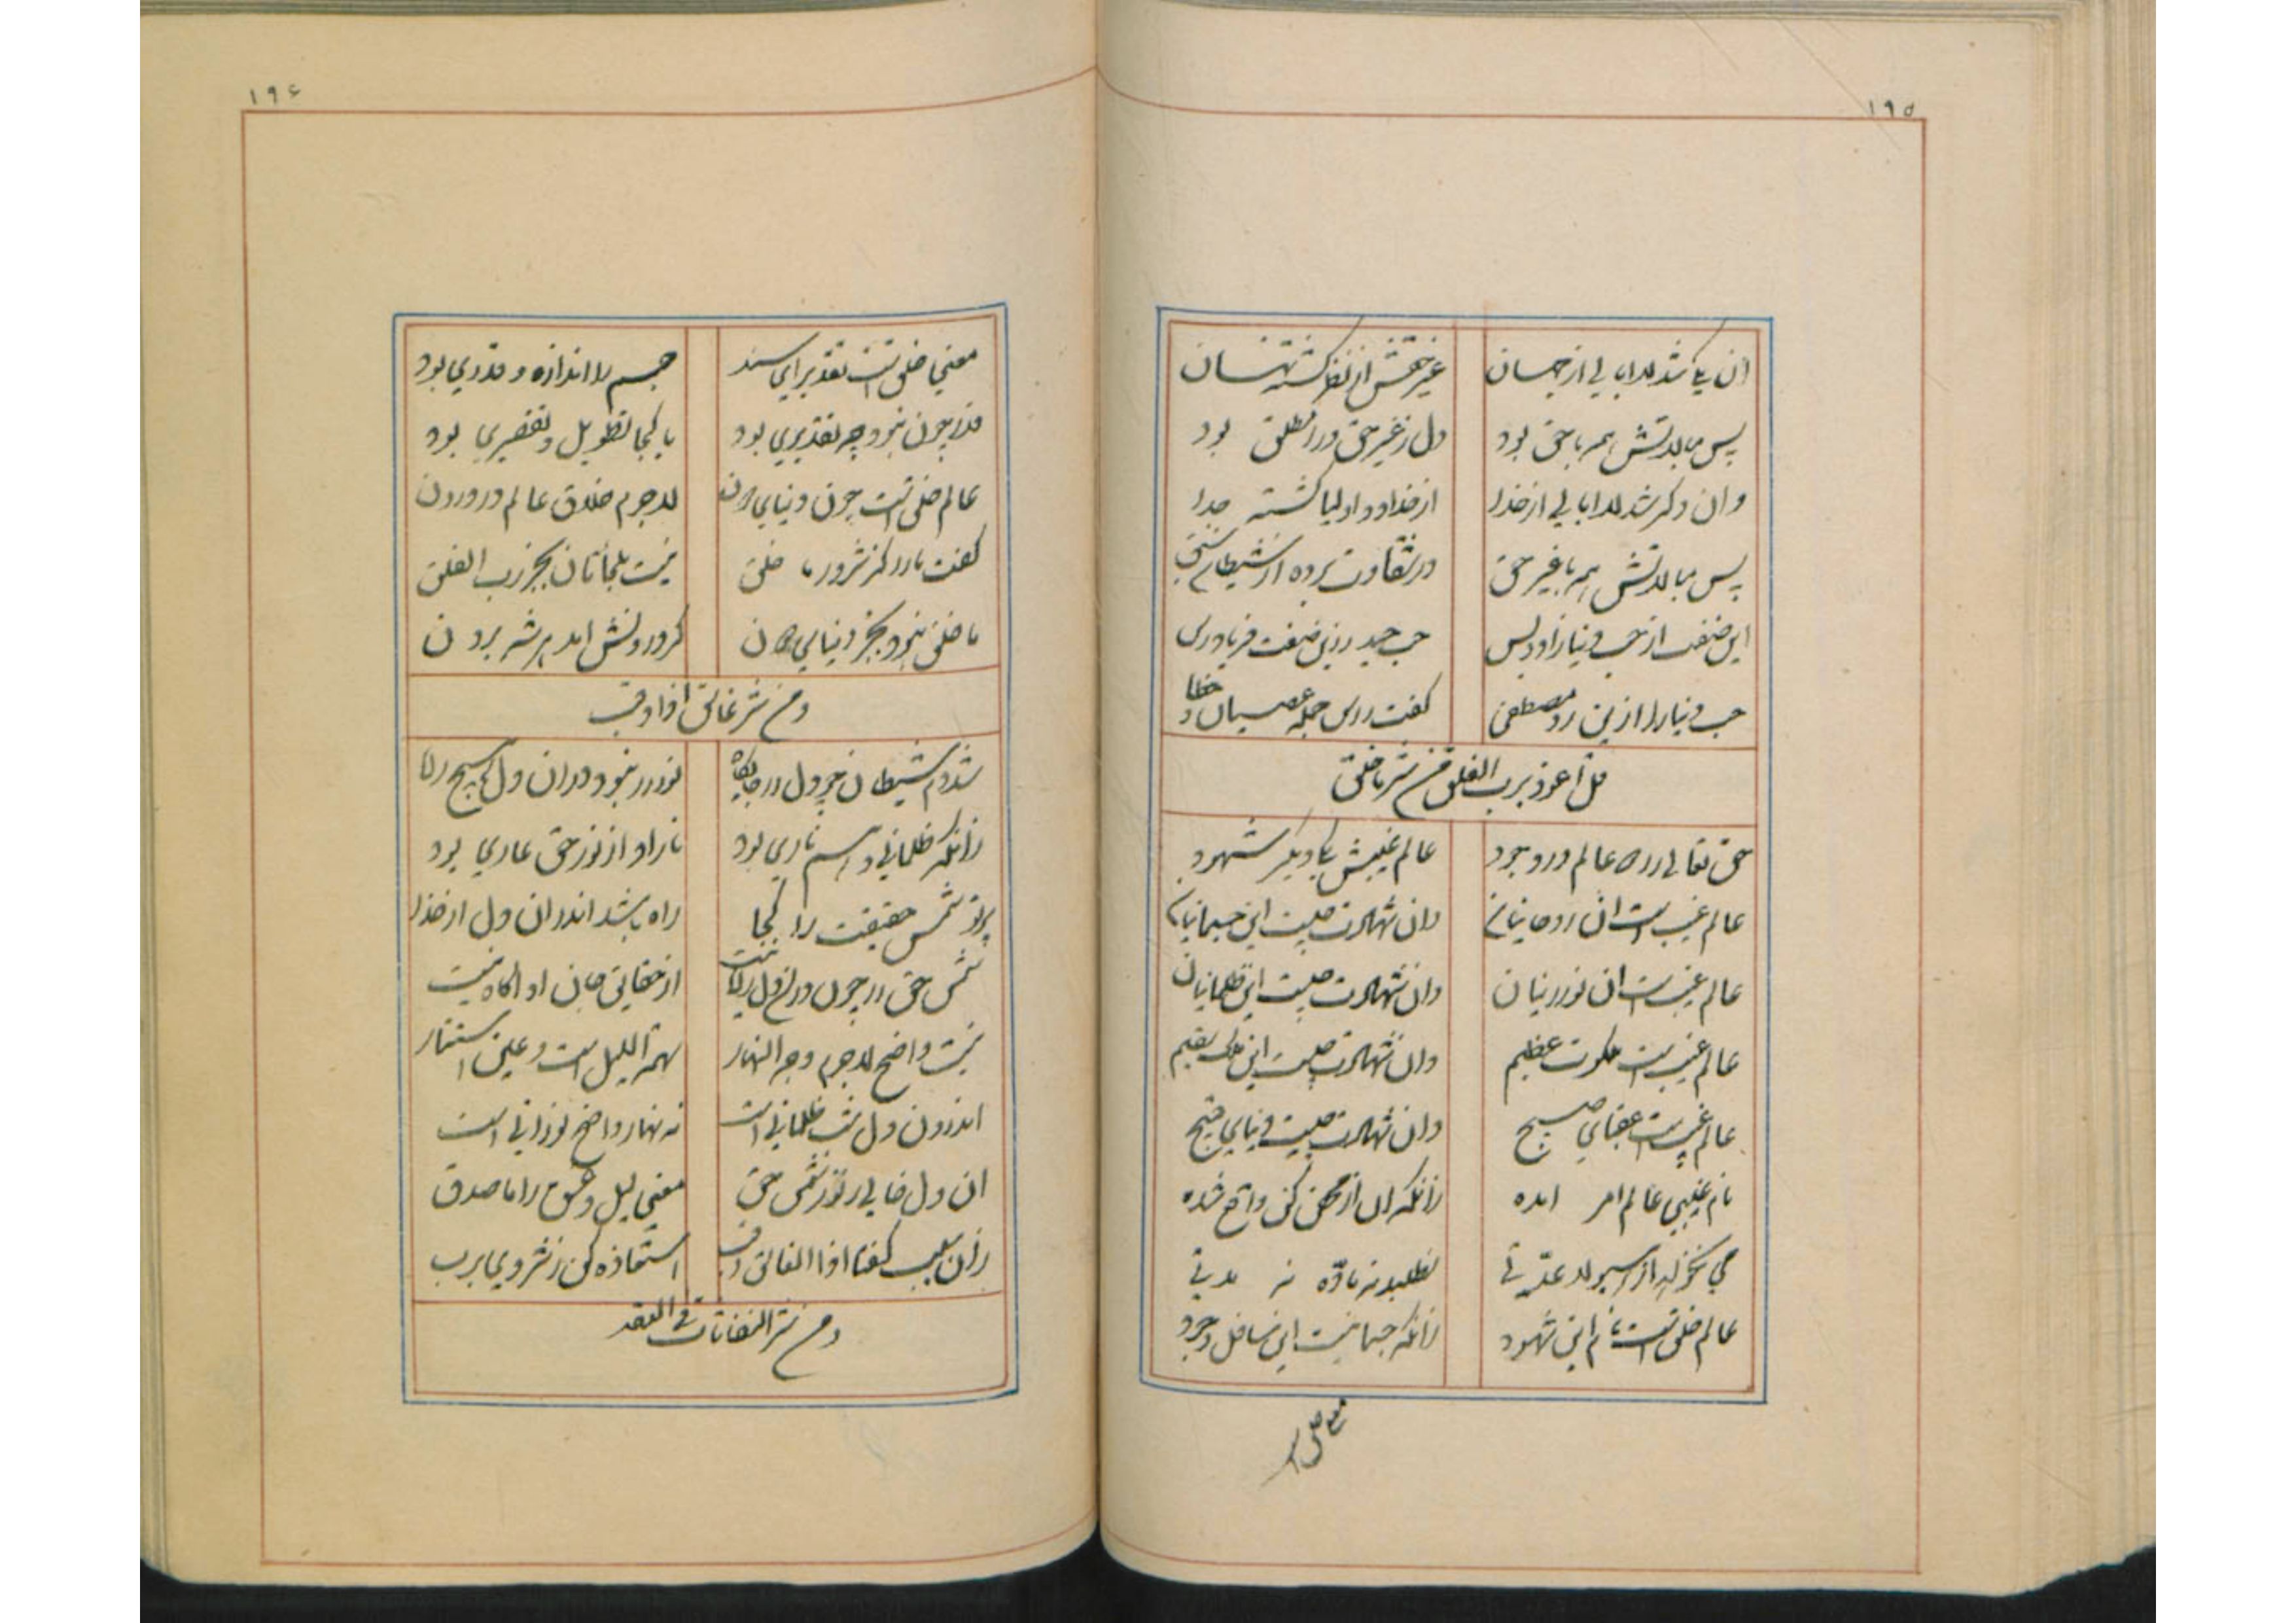 ۱۹۵
ان یکی شد لاابالی از جهان
غیر حقش از نظر گشته نهان
پس مبالاتش همه با حق بود
دل ز غیر حق ورا مطلق بود
وان دگر شد لاابالی از خدا
از خدا و اولیا گشته جدا
پس مبالاتش همه با غیر حق
در شقاوت برده از شیطان سبق
این صفت از حب دنیا زاد و بس
حب حیدر زین صفت فریادرس
حب دنیا را ازین رو مصطفی
گفت راس جمله عصیان و خطا
قل اعوذ برب الفلق من شر ما خلق
حق تعالی را دو عالم در وجود
عالم غیبش یکی دیگر شهود
عالم غیب است ان روحانیان
وان شهادت چیست این جسمانیان
عالم غیب است ان نورانیان
وان شهادت چیست این ظلمانیان
عالم غیب است ملکوت عظیم
وان شهادت چیست این ملک سقیم
عالم غیب است عقبای صبیح
وان شهادت چیست دنیای قبیح
نام غیبی عالم امر امده
زانکه ان از محض کن واقع شده
می نخواهد از هیولا عدتی
نطلبد نه ماده نه مدتی
عالم خلق است نام این شهود
زانکه جسمانیست این سافل وجود
معنی خلق است
۱۹۶
معنی خلق است تقدیر ای سند
جسم را اندازه و قدری بود
قدر چون نبود چه تقدیری بود
یا کجا تطویل و تقصیری بود
عالم خلق است چون دنیای دون
لاجرم خلاق عالم در درون
گفت نارد کز شرور ما خلق
نیست ملجاتان بجز رب الفلق
ما خلق نبود بجز دنیای دون
کز درونش امد هر شر برون
و من شر غاسق اذا وقب
شد دم شیطان چو دل را جایگاه
نور را نبود در ان دل هیچ راه
زانکه ظلمانی و هم ناری بود
نار او از نور حق عاری بود
پرتو شمس حقیقت را کجا
راه باشد اندر ان دل از خدا
شمس حق را چون در ان دل راه نیست
از حقایق جان او اگاه نیست
نیست واضح لاجرم وجه النهار
بهمة اللیل است و عین استتار
اندرون دل شب ظلمانی است
نه نهار واضح نورانی است
ان دل خالی ز نور شمس حق
معنی لیل و غسق را ما صدق
زان سبب گفتا اذا الغاسق وقب
استعاذه کن ز شر وی برب
و من شر النفاثات فی العقد